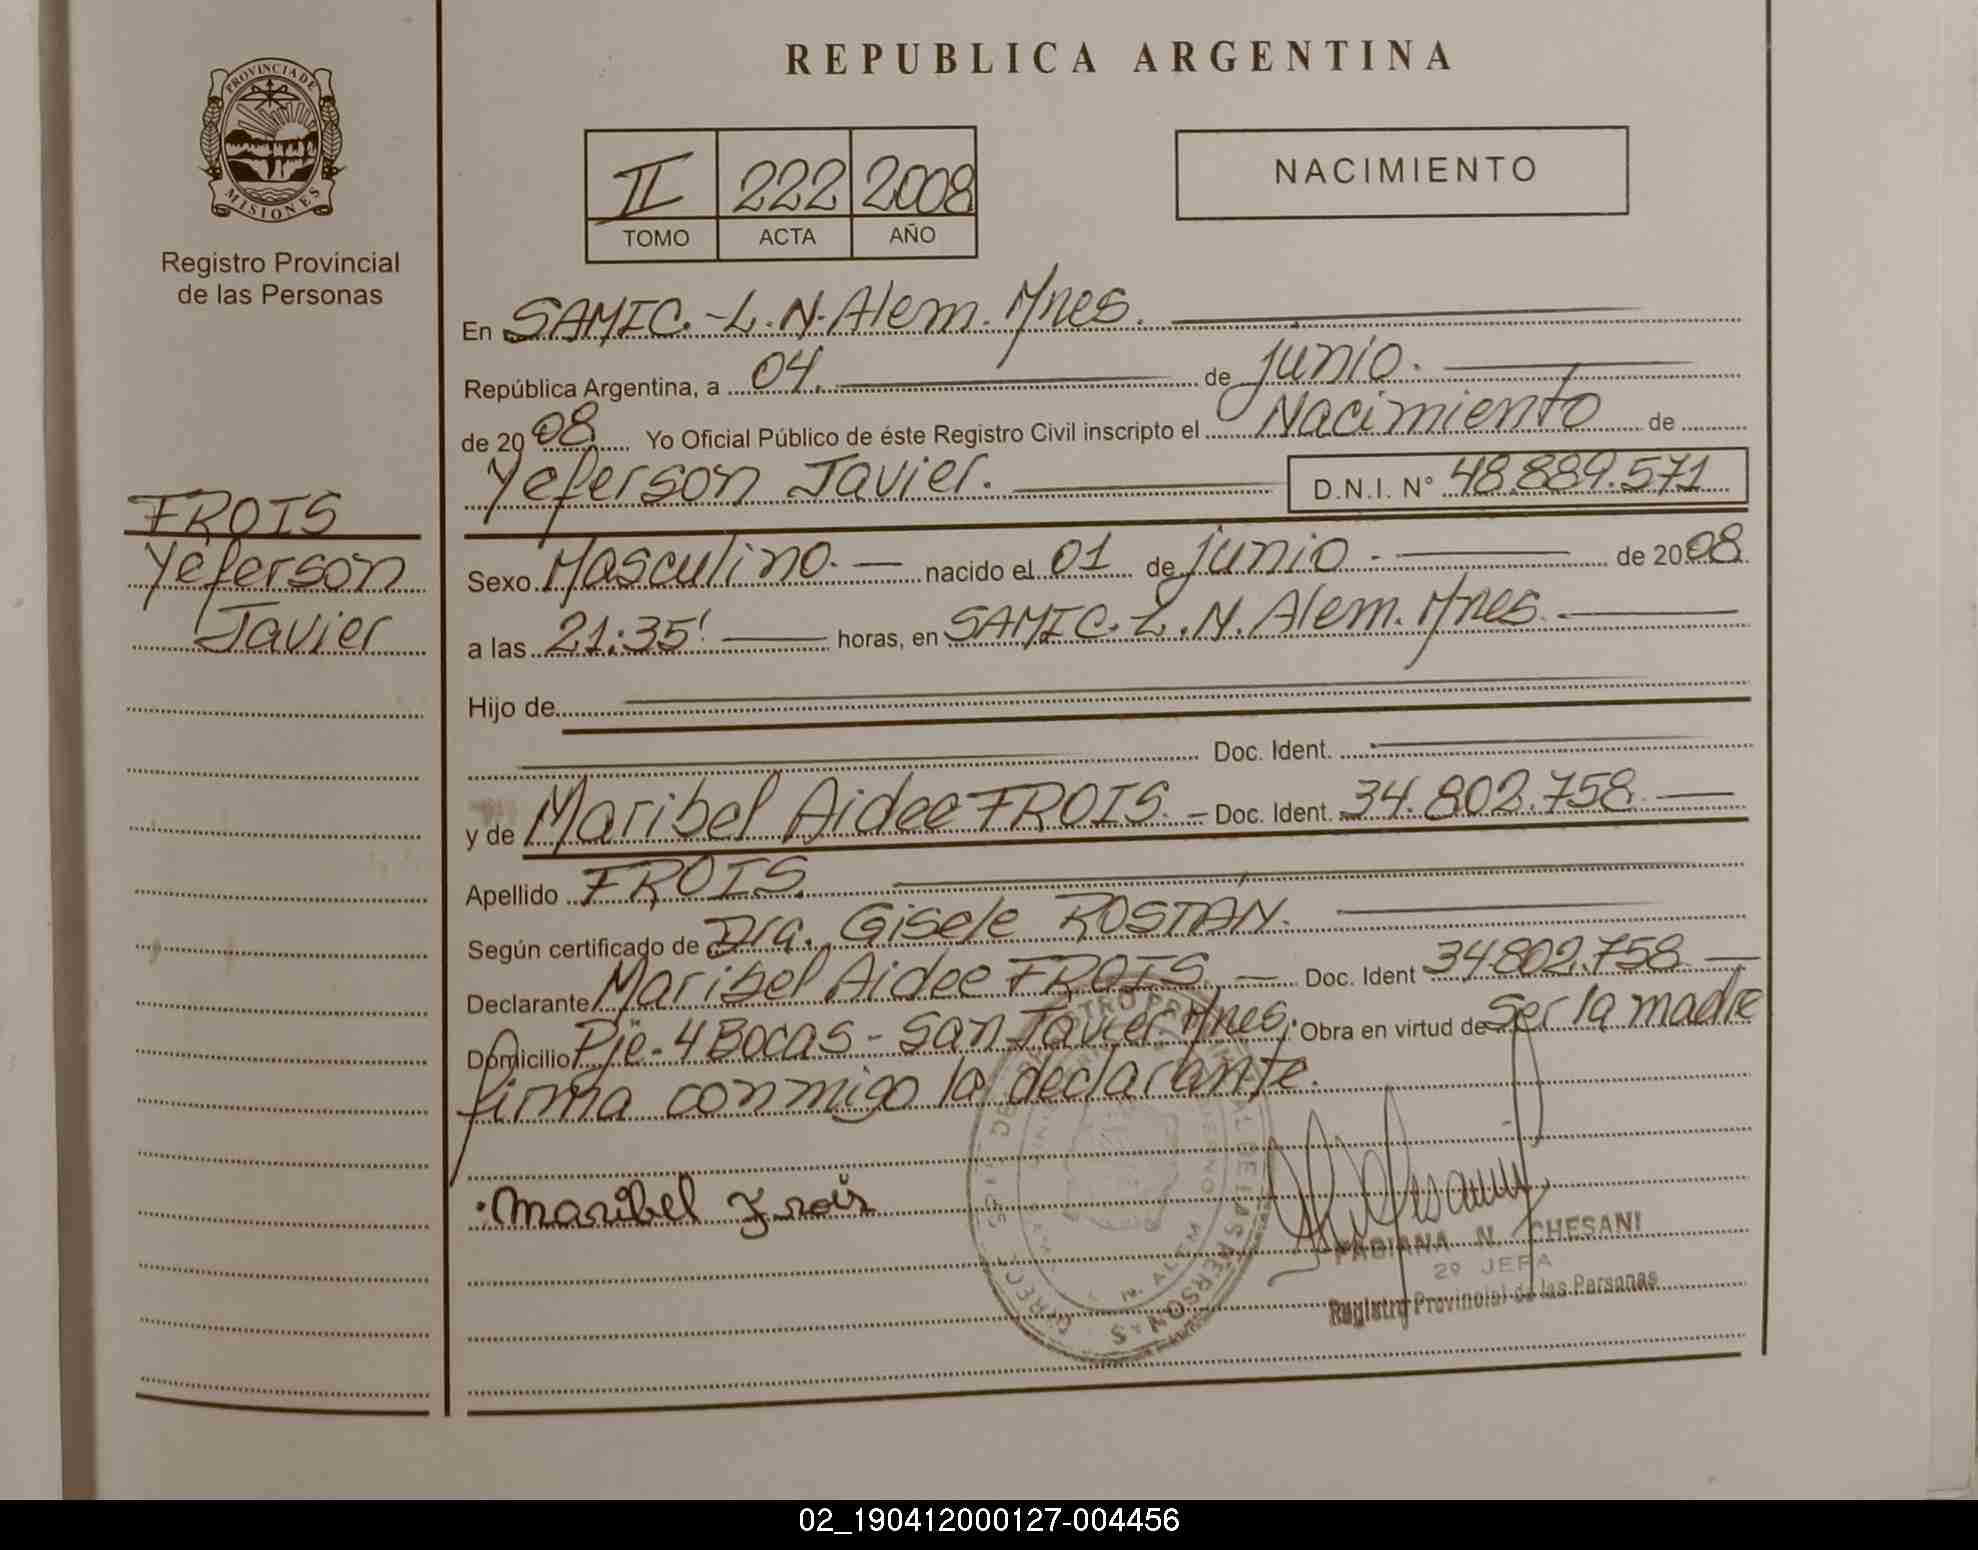 REPUBLICA ARGENTINA
PROVINCIA DE
MISIONES
Registro Provincial
de las Personas
II 222 2008
TOMO ACTA AÑO
NACIMIENTO
En SAMIC.-L.N.Alem.Mnes.
República Argentina, a 04. de junio.
de 2008 Yo Oficial Público de éste Registro Civil inscripto el Nacimiento de
Yeferson Javier. D.N.I. N° 48.889.571
FROIS
Yeferson
Javier
Sexo Masculino.- nacido el 01 de junio.- de 2008
a las 21:35' horas, en SAMIC.L.N.Alem.Mnes.
Hijo de
Doc. Ident.
y de Maribel Aidee FROIS.- Doc. Ident. 34.802.758.
Apellido FROIS.
Según certificado de Dra. Gisele ROSTÁN.
Declarante Maribel Aidee FROIS.- Doc. Ident 34802.758
Domicilio Pje.4 Bocas-San Javier.Mnes. Obra en virtud de ser la madre
firma conmigo la declarante.
Maribel Frois
FABIANA N. CHESANI
2º JEFA
Registro Provincial de las Personas
02_190412000127-004456